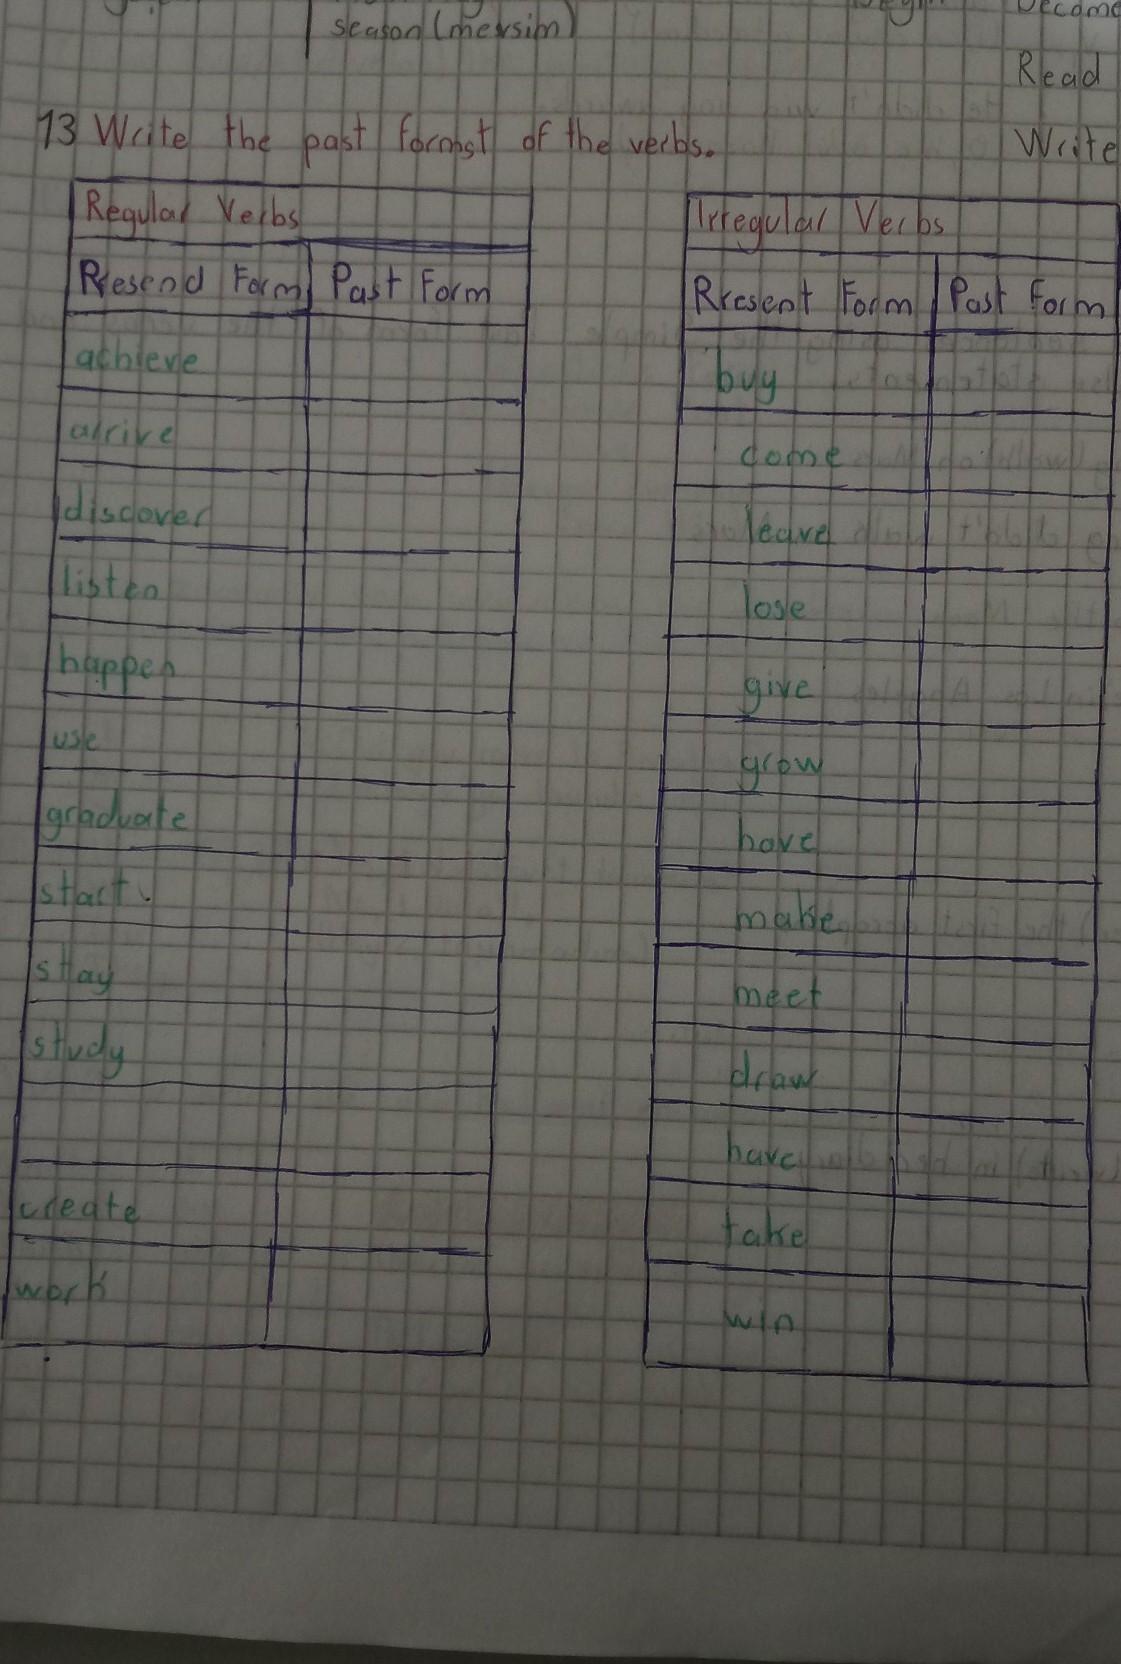 season (mevsim)
become
Read
Write
13 Write the past formst of the verbs.
Regular Verbs
Presend Form Past Form
achieve
arrive
discover
listen
happen
use
graduate
start
stay
study
create
work
Irregular Verbs
Present Form Past Form
buy
come
leave
lose
give
grow
have
make
meet
draw
have
take
win